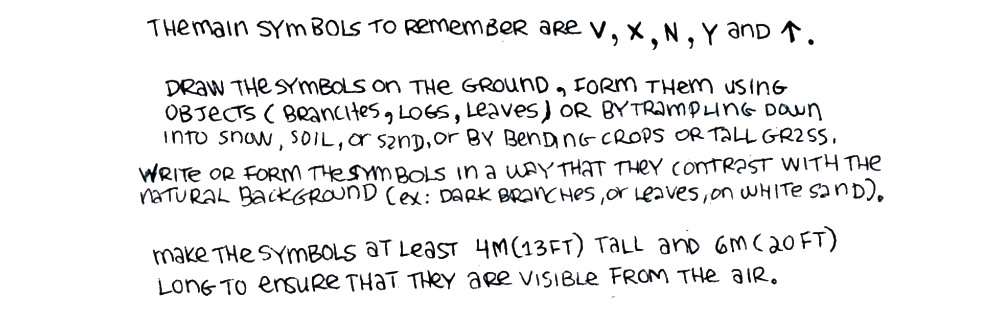 THE main SYMBOLS TO REMEMBER ARE V, X, N, Y AND ↑.
DRAW THE SYMBOLS ON THE GROUND, FORM THEM USING
OBJECTS (BRANCHES, LOGS, LEAVES) OR BY TRAMPLING DOWN
INTO SNOW, SOIL, OR SAND, OR BY BENDING CROPS OR TALL GRASS.
WRITE OR FORM THE SYMBOLS IN A WAY THAT THEY CONTRAST WITH THE
NATURAL BACKGROUND (ex: DARK BRANCHES, OR LEAVES, ON WHITE SAND).
MAKE THE SYMBOLS AT LEAST 4M (13FT) TALL AND 6M (20 FT)
LONG TO ENSURE THAT THEY ARE VISIBLE FROM THE AIR.